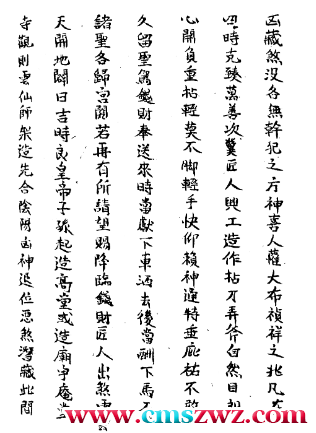 凶藏煞没各無幹犯之方神喜人懽大布禎祥之兆凡
四時克臻萬善次冀匠人興工造作拈刀弄斧自然目朗
心開負重拈輕莫不脚輕手快仰賴神通特垂庇祐不敢
久留聖駕錢財奉送來時當獻下車酒去後當酬下馬
諸聖各歸宮闕若再有所請望賜降臨錢財匠人出煞云
天開地闢日吉時良皇帝子孫起造高堂或造廟宇庵堂
寺觀則云仙師架造先合陰陽凶神退位惡煞潛藏此間
www.cmszwz.com